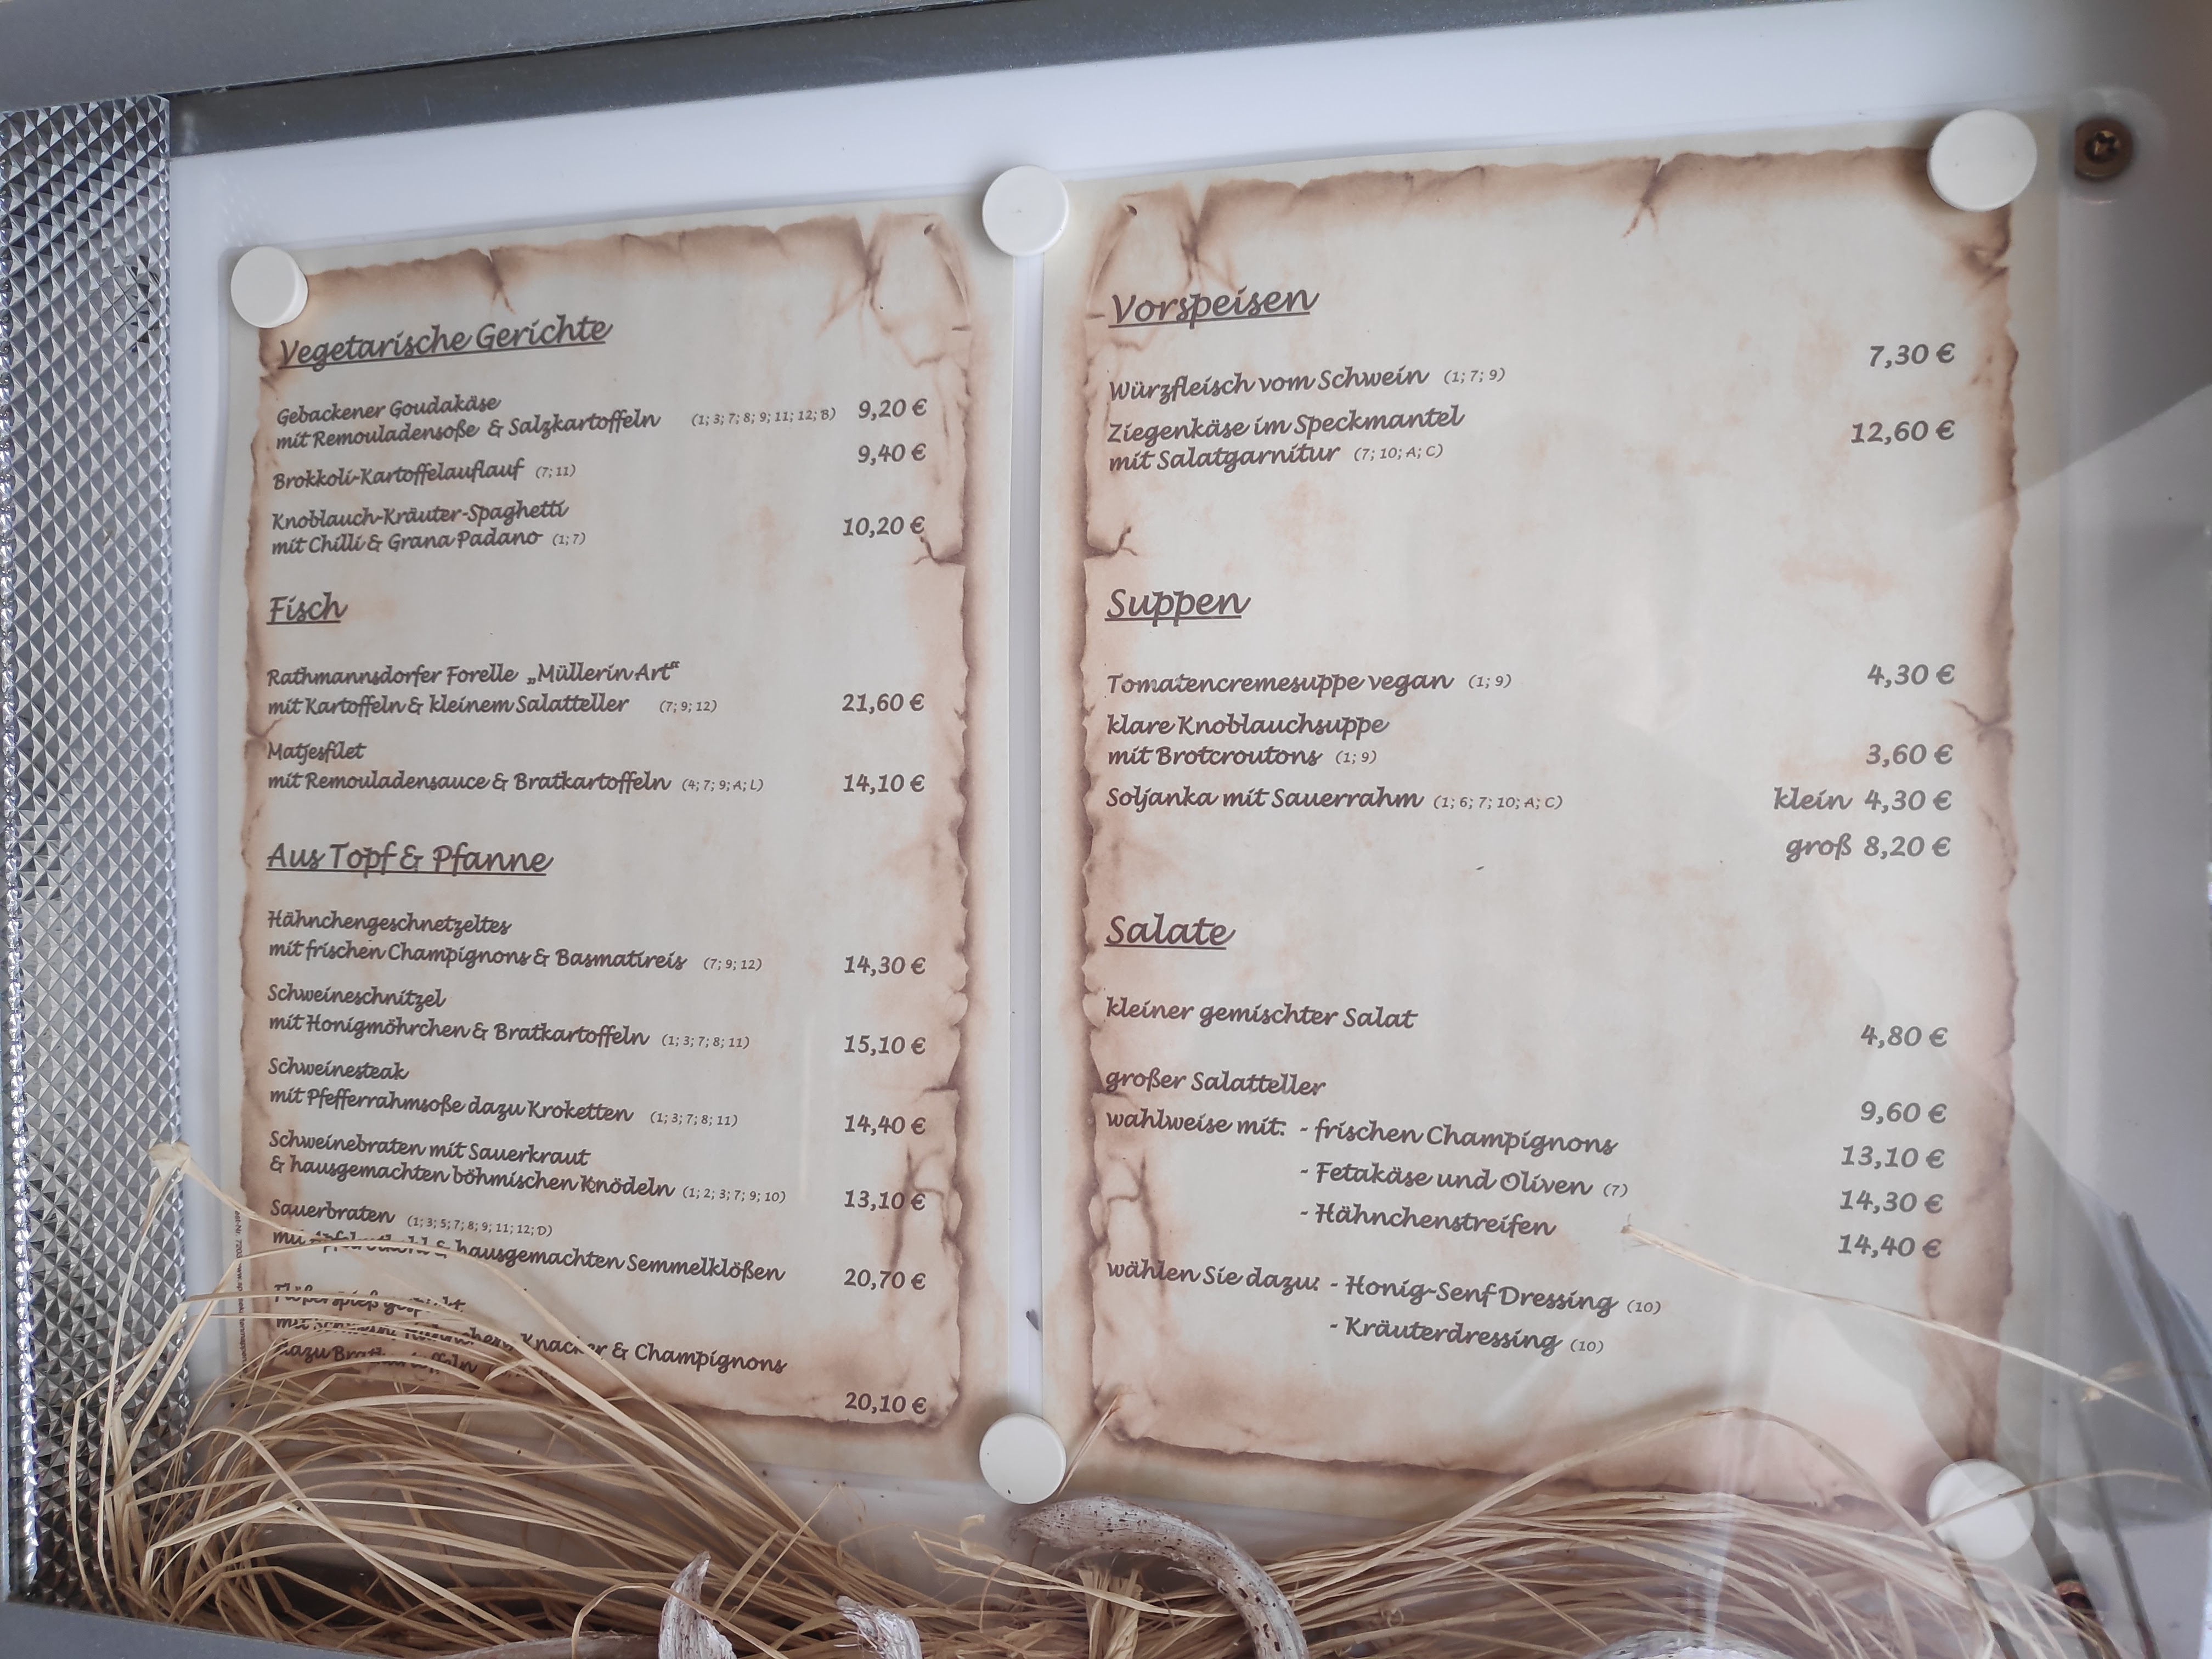 Vegetarische Gerichte
Gebackener Goudakäse
mit Remouladensoße & Salzkartoffeln (1; 3; 7; 8; 9; 11; 12; B) 9,20 €
Brokkoli-Kartoffelauflauf (7; 11) 9,40 €
Knoblauch-Kräuter-Spaghetti
mit Chilli & Grana Padano (1; 7) 10,20 €
Fisch
Rathmannsdorfer Forelle „Müllerin Art“
mit Kartoffeln & kleinem Salatteller (7; 9; 12) 21,60 €
Matjesfilet
mit Remouladensauce & Bratkartoffeln (4; 7; 9; A; L) 14,10 €
Aus Topf & Pfanne
Hähnchengeschnetzeltes
mit frischen Champignons & Basmatireis (7; 9; 12) 14,30 €
Schweineschnitzel
mit Honigmöhrchen & Bratkartoffeln (1; 3; 7; 8; 11) 15,10 €
Schweinesteak
mit Pfefferrahmsoße dazu Kroketten (1; 3; 7; 8; 11) 14,40 €
Schweinebraten mit Sauerkraut
& hausgemachten böhmischen Knödeln (1; 2; 3; 7; 9; 10) 13,10 €
Sauerbraten (1; 3; 5; 7; 8; 9; 11; 12; D)
mit Apfelrotkohl & hausgemachten Semmelklößen 20,70 €
Flößerspieß
mit Knacker & Champignons
dazu Bratkartoffeln
20,10 €
Vorspeisen
Würzfleisch vom Schwein (1; 7; 9) 7,30 €
Ziegenkäse im Speckmantel
mit Salatgarnitur (7; 10; A; C) 12,60 €
Suppen
Tomatencremesuppe vegan (1; 9) 4,30 €
klare Knoblauchsuppe
mit Brotcroutons (1; 9) 3,60 €
Soljanka mit Sauerrahm (1; 6; 7; 10; A; C) klein 4,30 €
groß 8,20 €
Salate
kleiner gemischter Salat 4,80 €
großer Salatteller 9,60 €
wahlweise mit: - frischen Champignons 13,10 €
- Fetakäse und Oliven (7) 14,30 €
- Hähnchenstreifen 14,40 €
wählen Sie dazu: - Honig-Senf Dressing (10)
- Kräuterdressing (10)